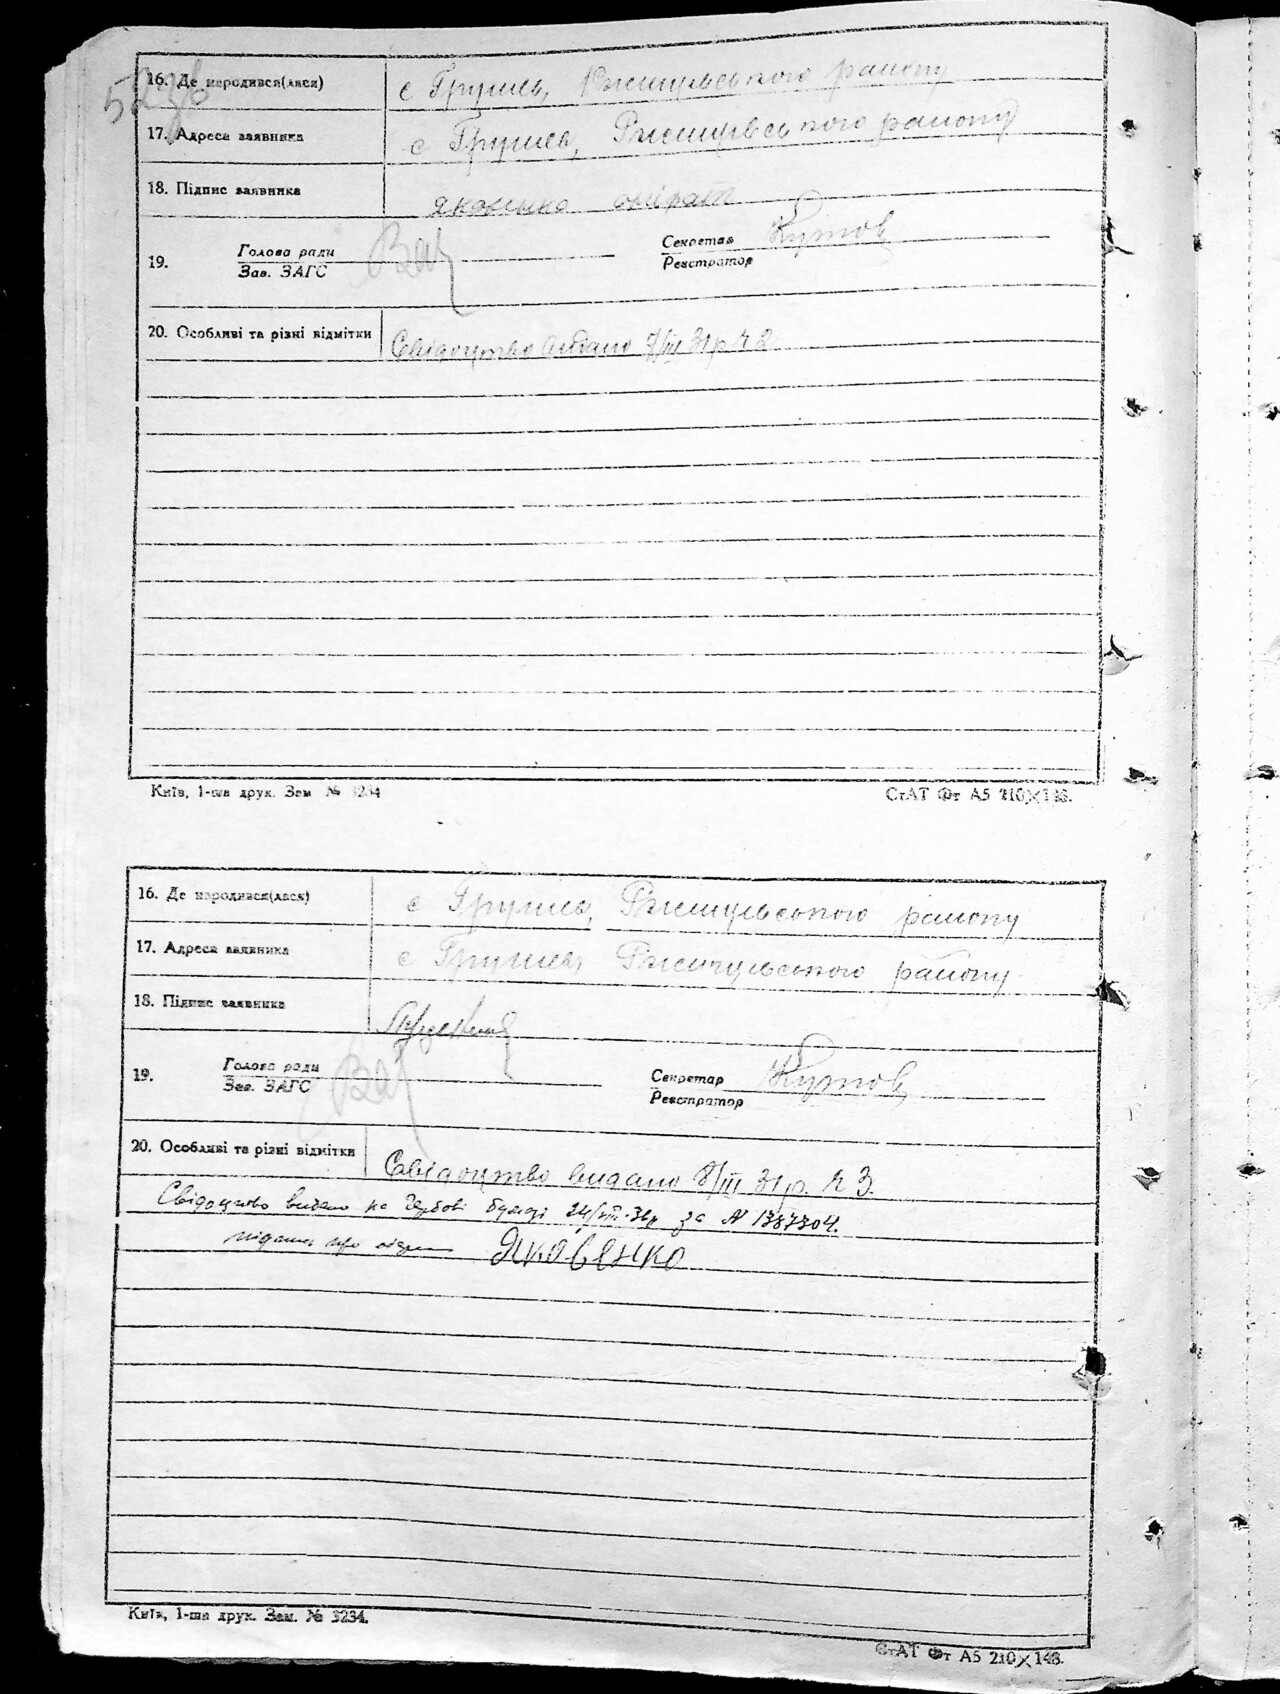 52 зв
16. Де народився(лася) с Грушев, Ржищевського району
17. Адреса заявника с Грушев, Ржищевського району
18. Підпис заявника Яковенко
19. Голова ради Секретар Кутов
Зав. ЗАГС Реєстратор
20. Особливі та різні відмітки Свідоцтво видано 8/III 31р ч 2
Київ, 1-ша друк. Зам № 3234 СтАТ Фт А5 210×148.
16. Де народився(лася) с Грушев, Ржищевського району
17. Адреса заявника с Грушев, Ржищевського району
18. Підпис заявника
19. Голова ради Секретар Кутов
Зав. ЗАГС Реєстратор
20. Особливі та різні відмітки Свідоцтво видано 8/III 31р. ч 3.
Свідоцтво видано на гербові бумазі 24/VIII-36р за № 1387304.
підпись про Яковенко
Київ, 1-ша друк. Зам. № 3234.
СтАТ Фт А5 210×148.